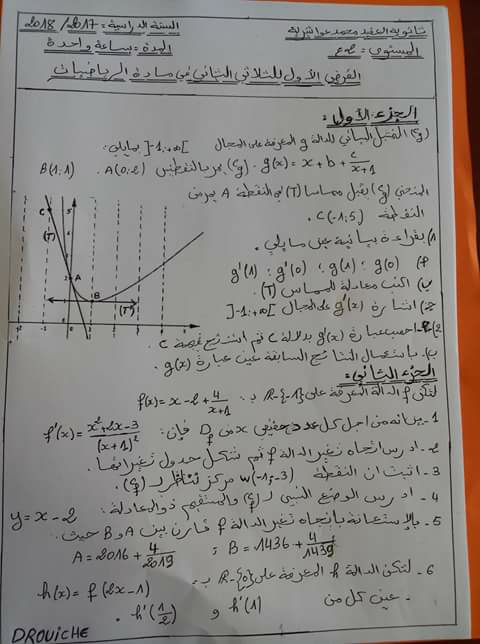 ثانوية العقيد محمد عواشرية
السنة الدراسية: 2017/2018
المستوى: 2 ع
المدة: ساعة واحدة
الفرض الأول للثلاثي الثاني في مادة الرياضيات
الجزء الأول:
(Cg) التمثيل البياني للدالة g المعرفة على المجال ]-1;+∞[ بمايلي:
g(x) = x + b + c/(x+1) . (Cg) يمر بالنقطتين A(0;2) . B(1;1)
المنحني (Cg) يقبل مماسا (T) في النقطة A يمر من
النقطة C(-1;5).
1) بقراءة بيانية عين مايلي.
أ) g(0) ؛ g(1) ؛ g'(0) ؛ g'(1)
ب) اكتب معادلة المماس (T).
ج) اشارة g'(x) على المجال ]-1;+∞[
2) أ- احسب عبارة g'(x) بدلالة c ثم استنتج قيمة c
ب) باستعمال النتائج السابقة عين عبارة g(x)
(T)
C
A
B
(T')
الجزء الثاني:
لتكن f الدالة المعرفة على R-{-1} بـ: f(x) = x - 2 + 4/(x+1)
1- بين انه من اجل كل عدد حقيقي x من Df فإن: f'(x) = (x²+2x-3)/(x+1)²
2- ادرس اتجاه تغير الدالة f ثم شكل جدول تغيراتها.
3- اثبت ان النقطة w(-1;-3) مركز تناظر لـ (Cf).
4- ادرس الوضع النسبي لـ (Cf) والمستقيم ذو المعادلة: y = x - 2
5- بالاستعانة باتجاه تغير الدالة f قارن بين A و B حيث:
A = 2016 + 4/2019 ؛ B = 1436 + 4/1439
6- لتكن الدالة h المعرفة على R-{0} بـ: h(x) = f(2x-1)
- عين كل من h'(1) و h'(1/2).
DROUICHE